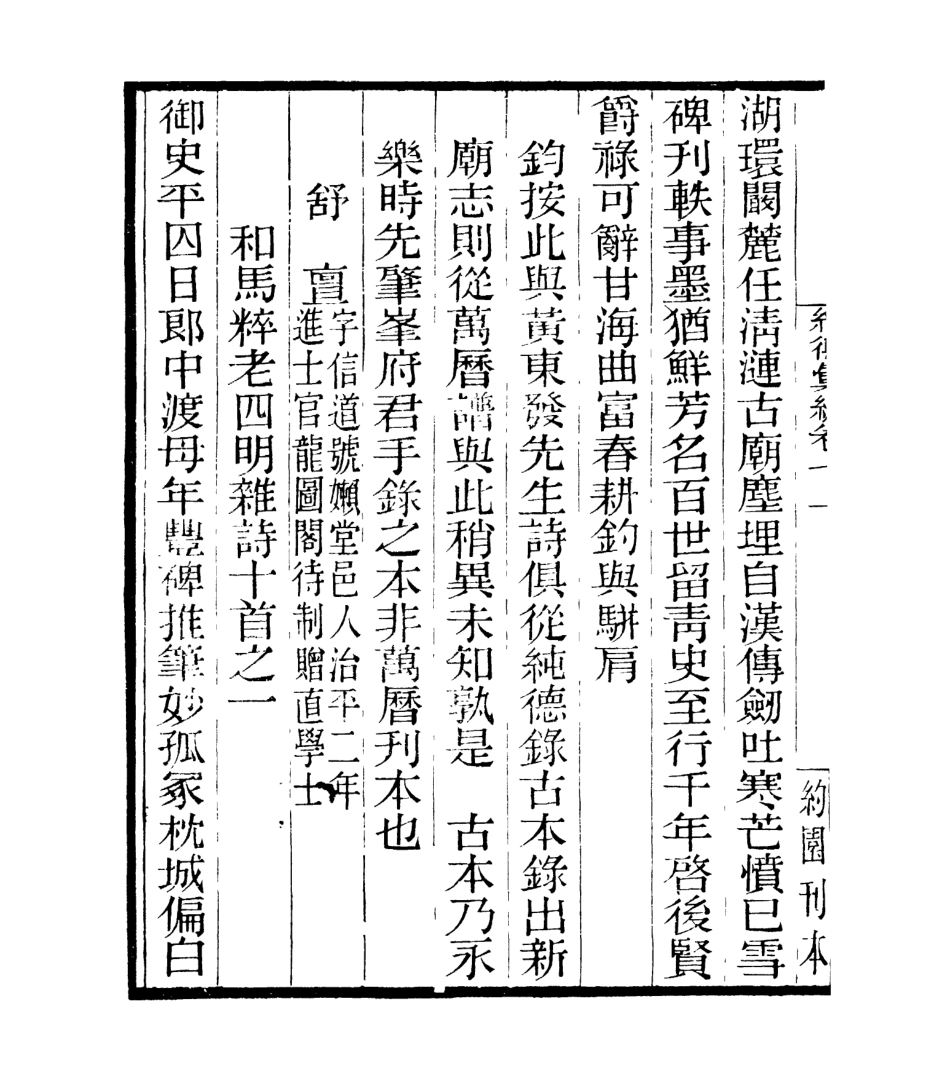 湖環闞麓任淸漣古廟塵埋自漢傳劒吐寒芒憤已雪
碑刊軼事墨猶鮮芳名百世留靑史至行千年啓後賢
爵祿可辭甘海曲富春耕釣與駢肩
鈞按此與黃東發先生詩俱從純德錄古本錄出新
廟志則從萬曆譜與此稍異未知孰是　古本乃永
樂時先肇峯府君手錄之本非萬曆刊本也
舒　亶字信道號嬾堂邑人治平二年
進士官龍圖閣待制贈直學士
和馬粹老四明雜詩十首之一
御史平囚日郞中渡母年豐碑推筆妙孤冢枕城偏白
約園刊本